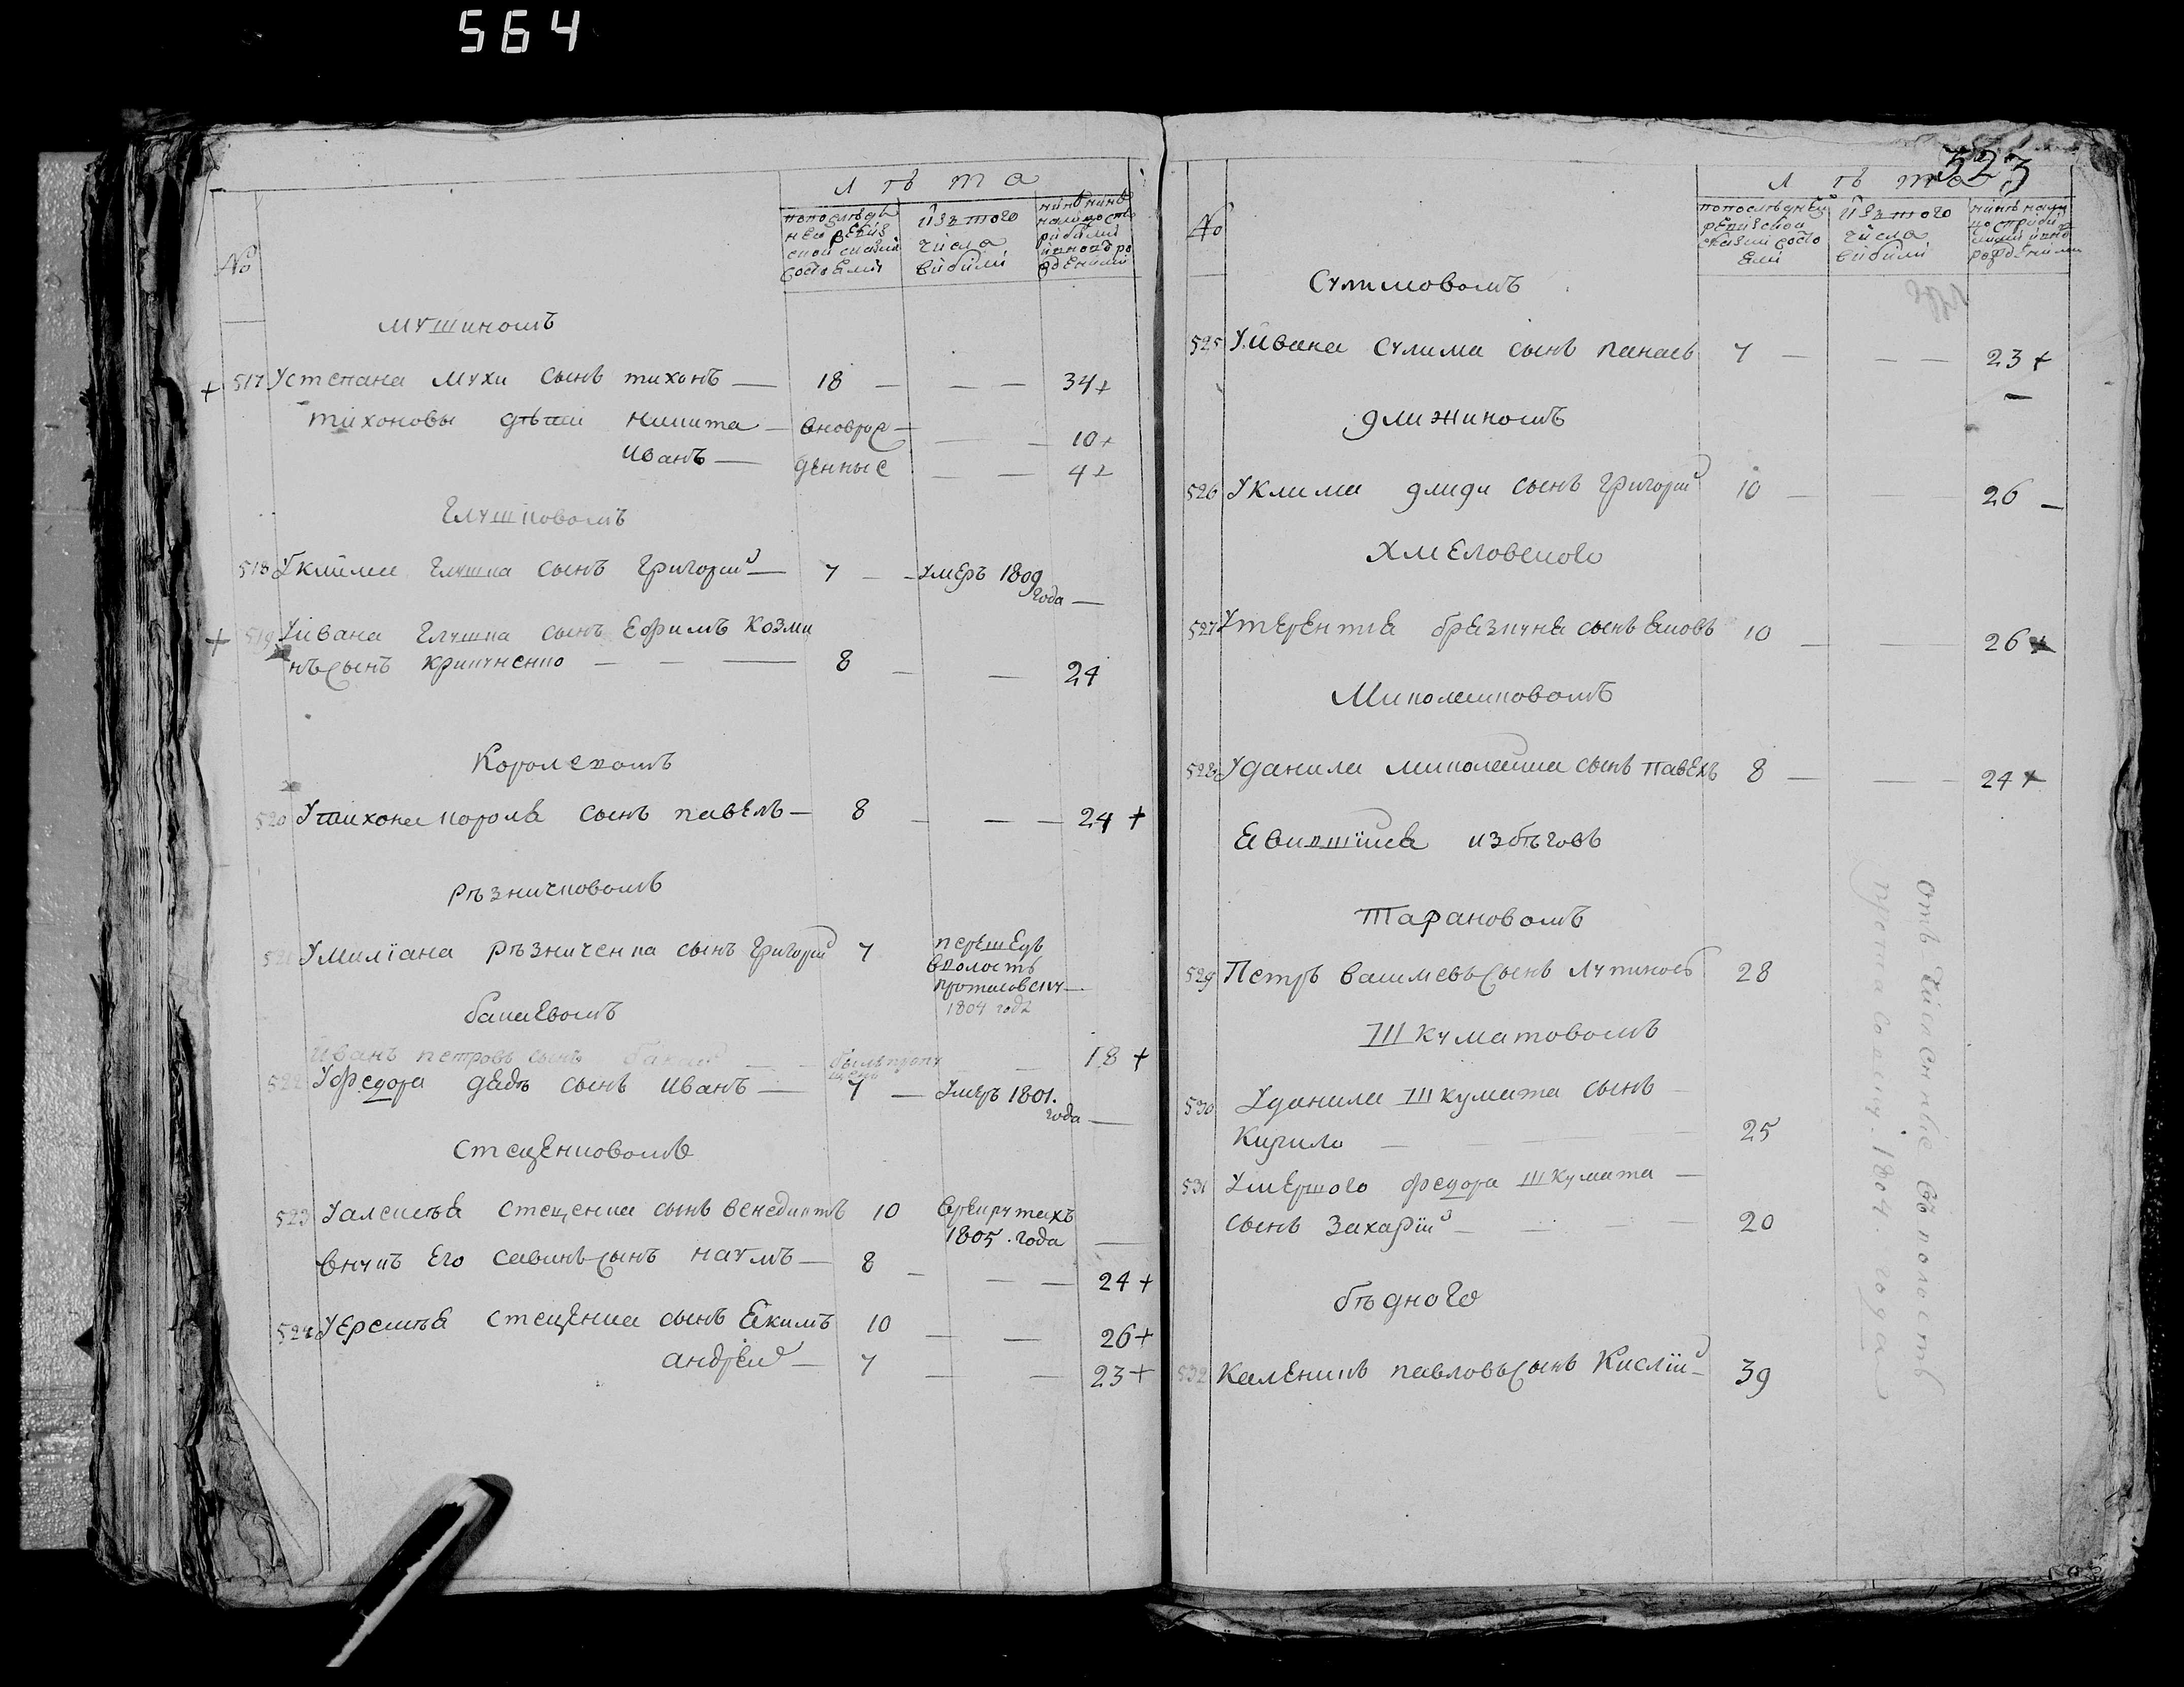 564
Лѣта
№
попослѣдъ
ней ревиз
ской сказки
состояли
изъ того
числа
выбыли
рыбыли
мушином
517 Устепана мухи сынъ тихонъ — 18 — — — 34 +
тихоновы дѣти никита — вноврож — — — 10 +
иванъ — денные — — 4 +
глушковомъ
518 Уклима глушка сынъ григории — 7 — умеръ 1809
года —
519 Уивана глушка сынъ ефимъ козми
нъ сынъ — — — 8 — — 24
Королевомъ
520 Утихона короля сынъ павелъ — 8 — — — 24 +
рѣзничковомъ
521 Умилїана рѣзниченка сынъ григории 7 перешедъ
вволость
1804 года
бакаевомъ
иванъ петровъ сынъ бакаи — былъ пропу
щенъ — 18 +
522 Уфедора дедѣ сынъ иванъ — 7 — умеръ 1801.
года —
стеценковомъ
523 Уалексѣя стеценка сынъ венедиктъ 10 врекрутахъ
1805. года —
внукъ его савинъ сынъ наумъ — 8 — — — 24 +
524 Уеремѣя стеценка сынъ якимъ 10 — — 26 +
андреи — 7 — — 23 +
323
Лѣта
№
попослѣднеи
ревизскои
сказки состо
яли
изъ того
числа
выбыли
сулимовомъ
525 Уивана сулима сынъ панасъ 7 — — — 23 +
—
526 Уклима сынъ григории 10 — — 26 —
хмеловского
527 Утерентїя сынъ яковъ 10 — — 26 +
Миколаиковомъ
528 Уданила миколаика сынъ павелъ 8 — — — 24 +
явившїися избѣговъ
тарановомъ
529 Петръ сынъ 28
Шкуматовомъ
530 Уданила Шкумата сынъ —
Кирило — — — 25
531 Умершого федора Шкумата —
сынъ захарїи — — — 20
бѣдного
532 Каленикъ павловъ сынъ Кислїи — 39
1804. года